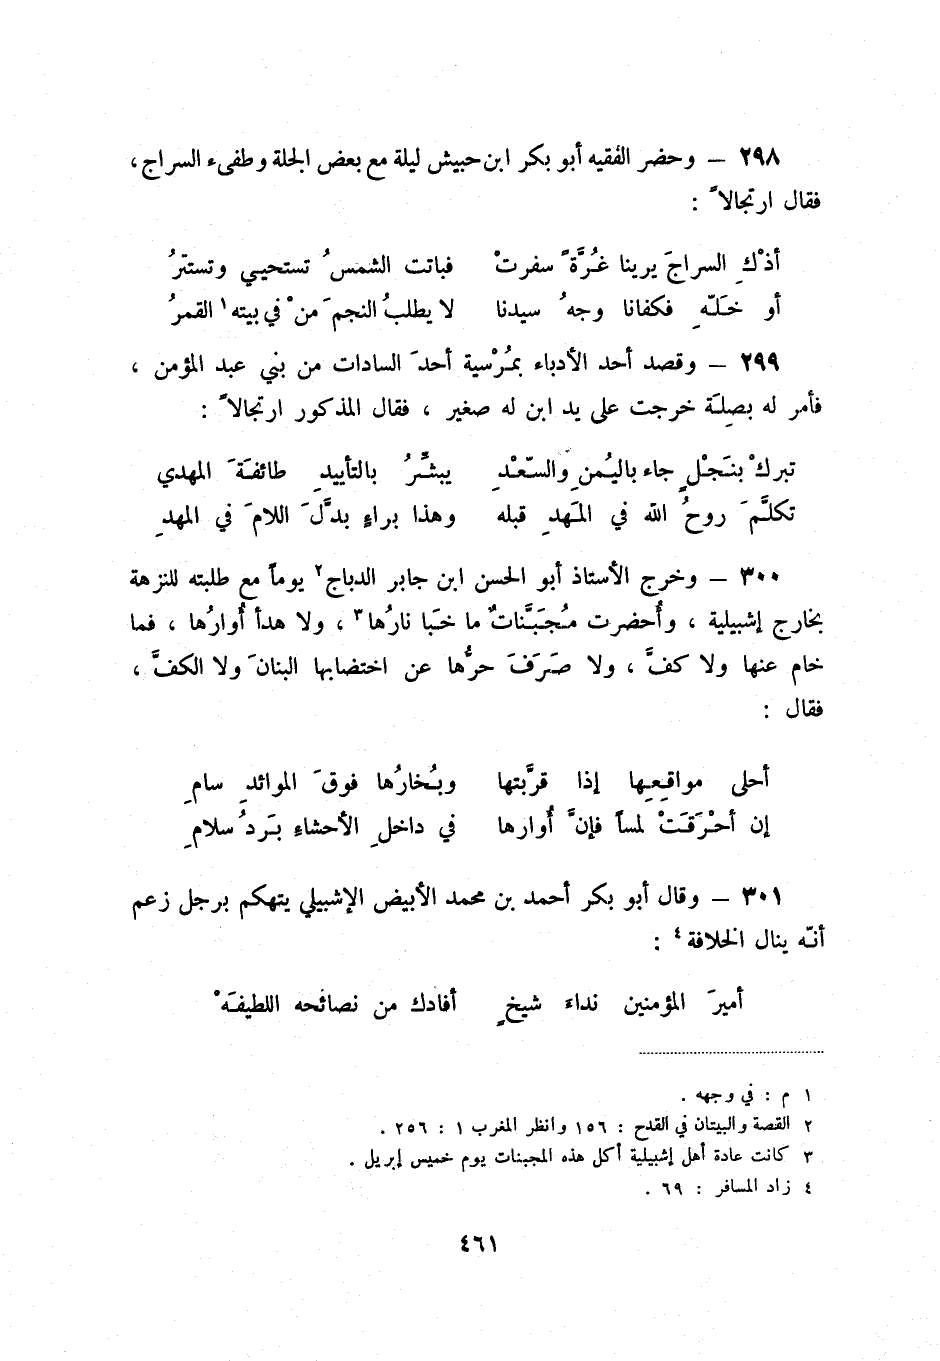 ٢٩٨ — وحضر الفقيه أبو بكر ابن حبيش ليلة مع بعض الجلة وطفىء السراج ،
فقال ارتجالاً :
أذْكِ السراجَ يرينا غُرَّةً سفرتْ فباتت الشمسُ تستحيـي وتستترُ
أو خَلّهِ فكفانا وجهُ سيدنا لا يطلبُ النجمَ منْ في بيته ١ القمرُ
٢٩٩ — وقصد أحد الأدباء بمُرْسية أحدَ السادات من بني عبد المؤمن ،
فأمر له بصِلَة خرجت على يد ابن له صغير ، فقال المذكور ارتجالاً :
تبركْ بنَجْلٍ جاء باليُمنِ والسّعْدِ يبشِّرُ بالتأييدِ طائفَةَ المهدي
تكلَّمَ روحُ الله في المَهدِ قبله وهذا براءٍ بدَّلَ اللامَ في المهدِ
٣٠٠ — وخرج الأستاذ أبو الحسن ابن جابر الدباج ٢ يوماً مع طلبته للنزهة
بخارج إشبيلية ، وأُحضرت مُجَبَّناتٌ ما خَبا نارُها ٣ ، ولا هدأ أُوارُها ، فما
خام عنها ولا كفَّ ، ولا صَرَفَ حرُّها عن اختضابها البنانَ ولا الكفَّ ،
فقال :
أحلى مواقِعِها إذا قرَّبتها وبُخارُها فوقَ الموائدِ سامِ
إن أحْرَقَتْ لمساً فإنَّ أُوارها في داخلِ الأحشاء بَردُ سلامِ
٣٠١ — وقال أبو بكر أحمد بن محمد الأبيض الإشبيلي يتهكم برجل زعم
أنّه ينال الخلافة ٤ :
أميرَ المؤمنين نداءَ شيخٍ أفادك من نصائحه اللطيفَهْ
١ م : في وجهه .
٢ القصة والبيتان في القدح : ١٥٦ وانظر المغرب ١ : ٢٥٦ .
٣ كانت عادة أهل إشبيلية أكل هذه المجبنات يوم خميس إبريل .
٤ زاد المسافر : ٦٩ .
٤٦١